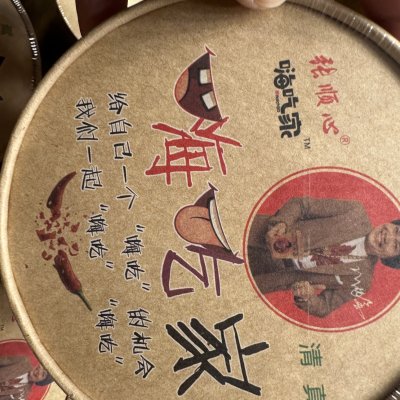 顺心®
嗨吃家™
嗨吃家
给自己一个“嗨吃”的机会
我们一起“嗨吃”“嗨吃”
清真